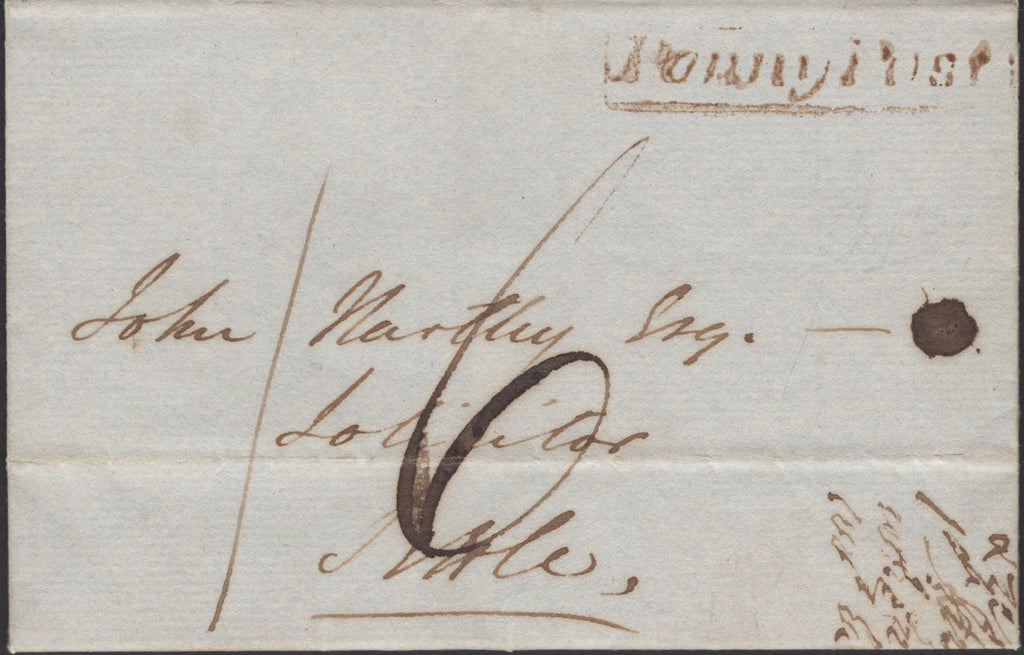 Penny Post
1/6
John Hartley Esq. —
Solicitor
Settle,